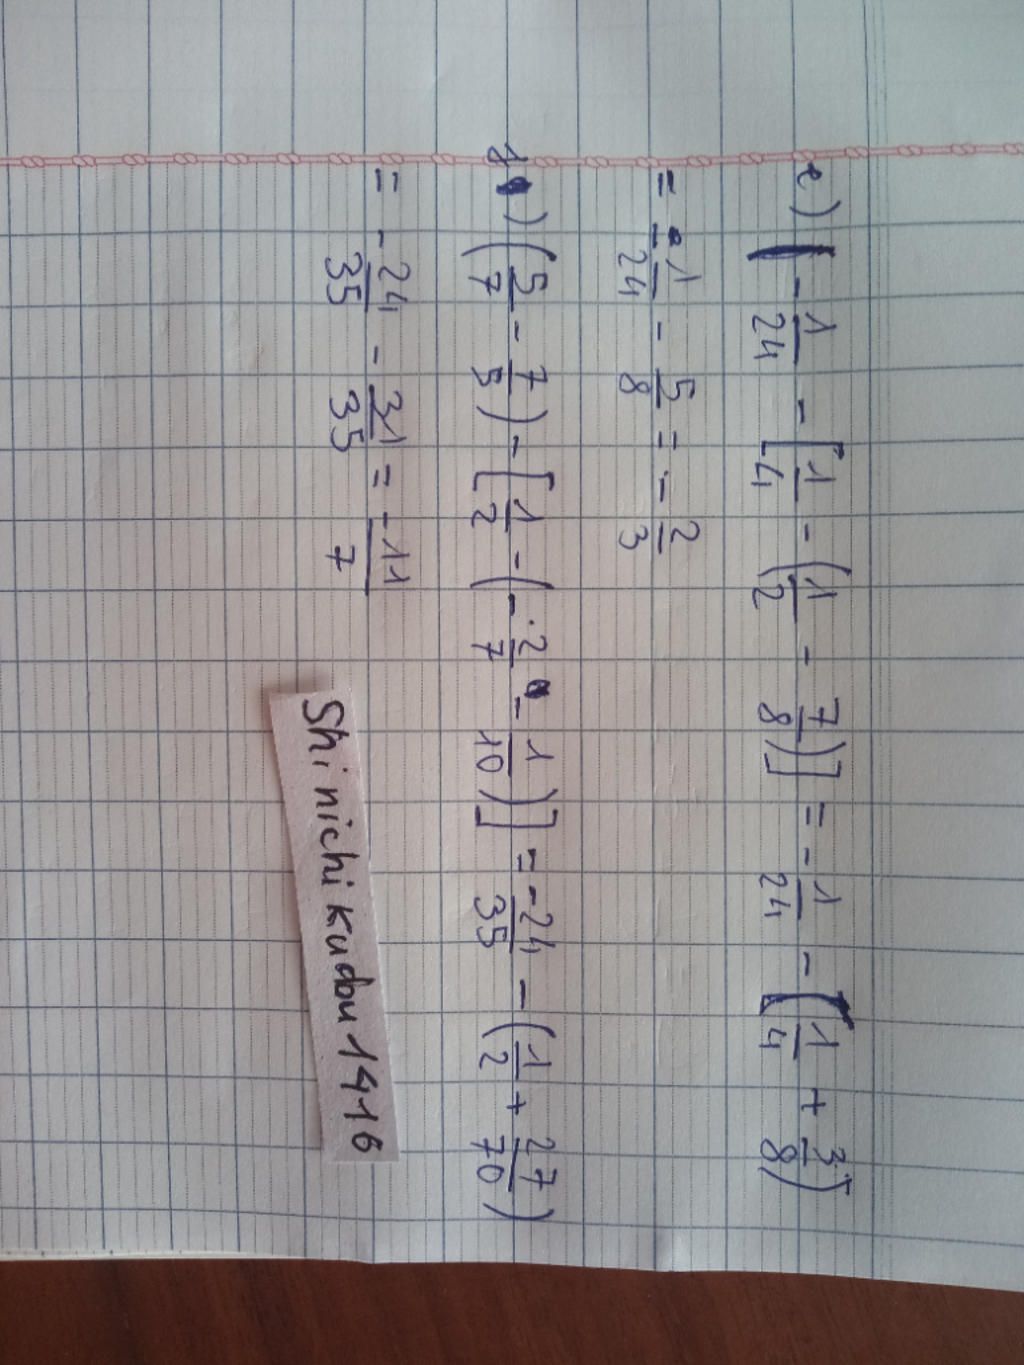 e) ( -1/24 - [1/4 - (1/2 - 7/8)] = -1/24 - (1/4 + 3/8)
= -1/24 - 5/8 = -2/3
g) (5/7 - 7/5) - [1/2 - (-2/7 - 1/10)] = -24/35 - (1/2 + 27/70)
= -24/35 - 31/35 = -11/7
Shinichi Kudou 1416